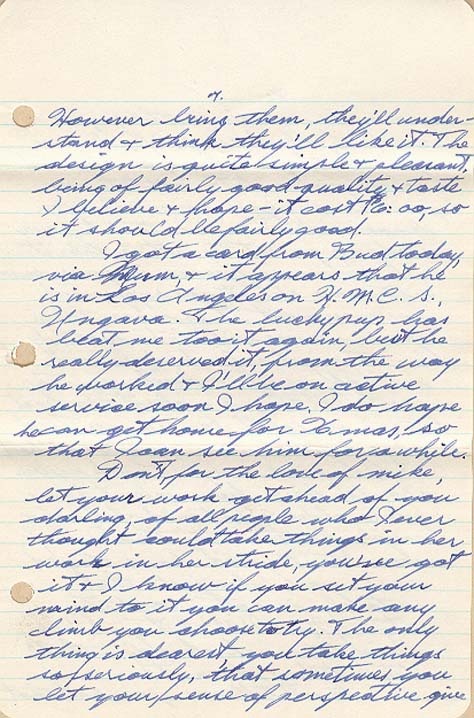 7.
However bring them, they'll under-
stand & think they'll like it. The
design is quite simple & pleasant,
being of fairly good quality & taste
I believe & hope - it cost 00, so
it should be fairly good.
I got a card from Bud today,
via Mum, & it appears that he
is in Los Angeles on H.M.C.S.,
Ungava. The lucky pup has
beat me too it again, but he
really deserved it, from the way
he worked & I'll be on active
service soon I hope. I do hope
he can get home for Xmas, so
that I can see him for a while.
Don't, for the love of mike,
let your work get ahead of you
darling, of all people who I ever
thought could take things in her
work in her stride, you've got
it & I know if you set your
mind to it you can make any
climb you choose to try. The only
thing is dearest, you take things
so seriously, that sometimes you
let your sense of perspective give